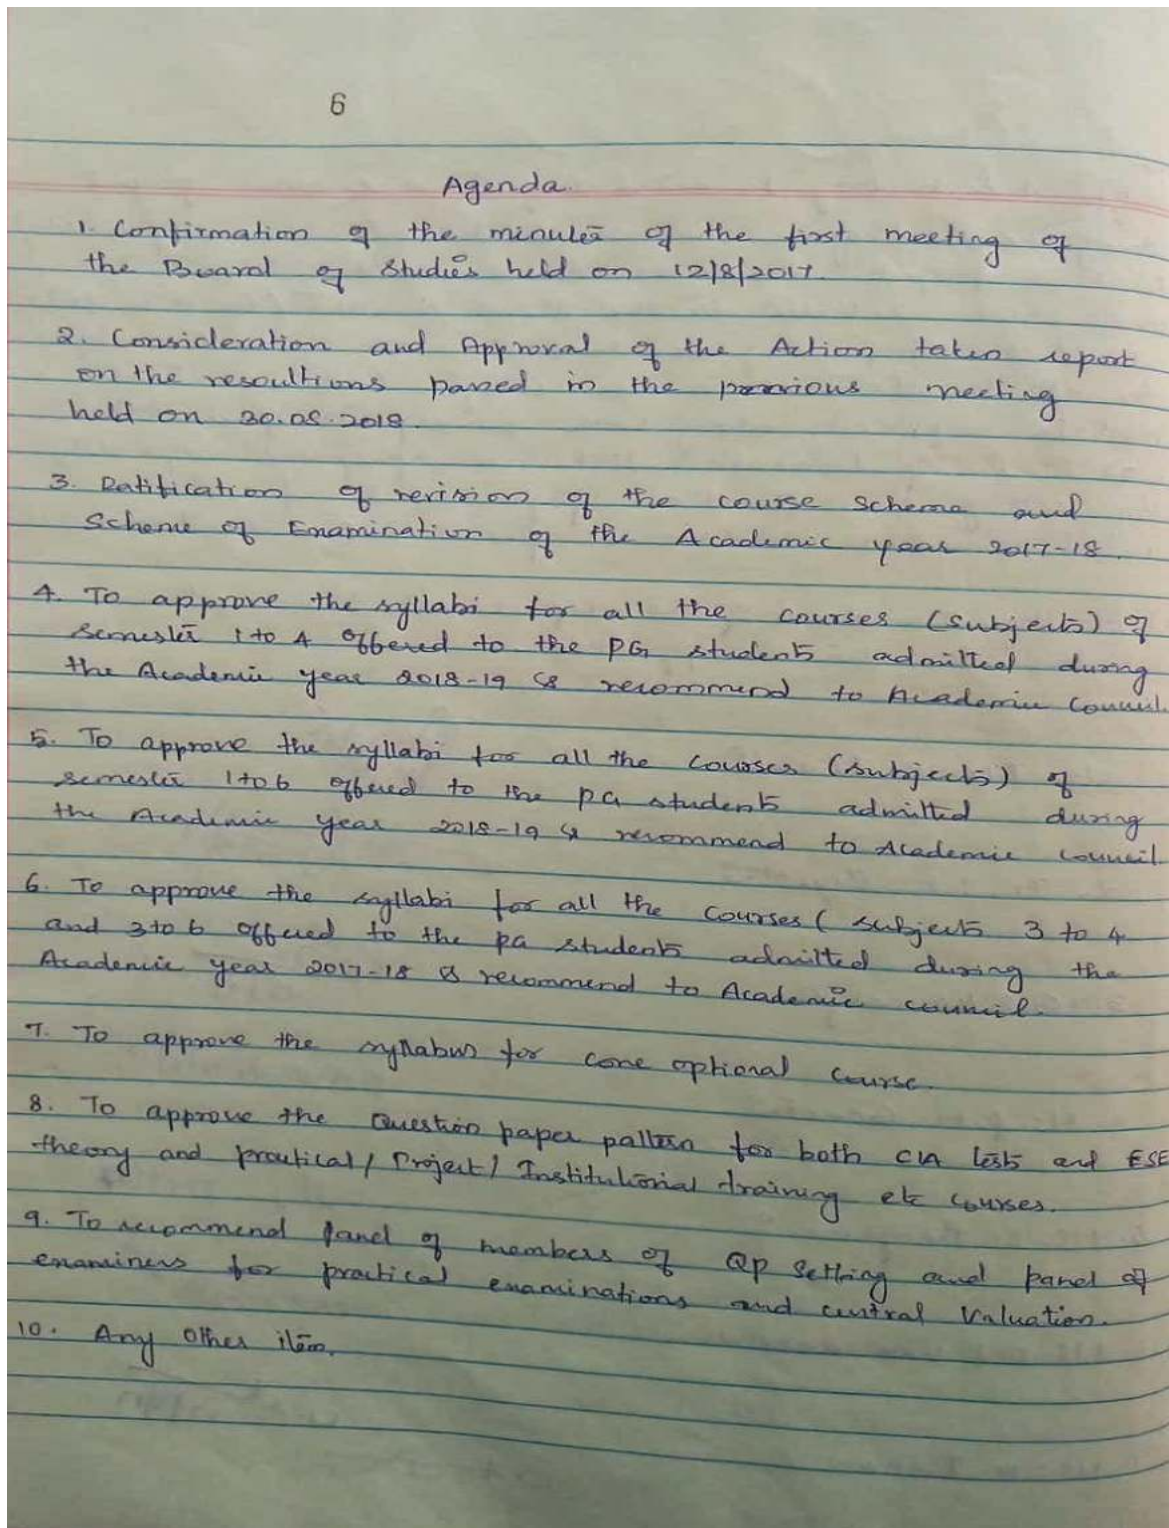 6
Agenda.
1. Confirmation of the minutes of the first meeting of
the Board of Studies held on 12/8/2017.
2. Consideration and Approval of the Action taken report
on the resoultions passed in the previous meeting
held on 30.08.2018.
3. Ratification of revision of the course scheme and
Scheme of Examination of the Academic year 2017-18.
4. To approve the syllabi for all the courses (subjects) of
semester 1 to 4 offered to the PG students admitted during
the Academic year 2018-19 & recommend to Academic Council.
5. To approve the syllabi for all the courses (subjects) of
semester 1 to 6 offered to the PG students admitted during
the Academic year 2018-19 & recommend to Academic council.
6. To approve the syllabi for all the courses ( subjects 3 to 4
and 3 to 6 offered to the PG students admitted during the
Academic year 2017-18 & recommend to Academic council.
7. To approve the syllabus for core optional course.
8. To approve the Question paper pattern for both CIA tests and ESE
theory and practical / Project / Institutional training etc courses.
9. To recommend panel of members of QP setting and panel of
examiners for practical examinations and central Valuation.
10. Any other item.